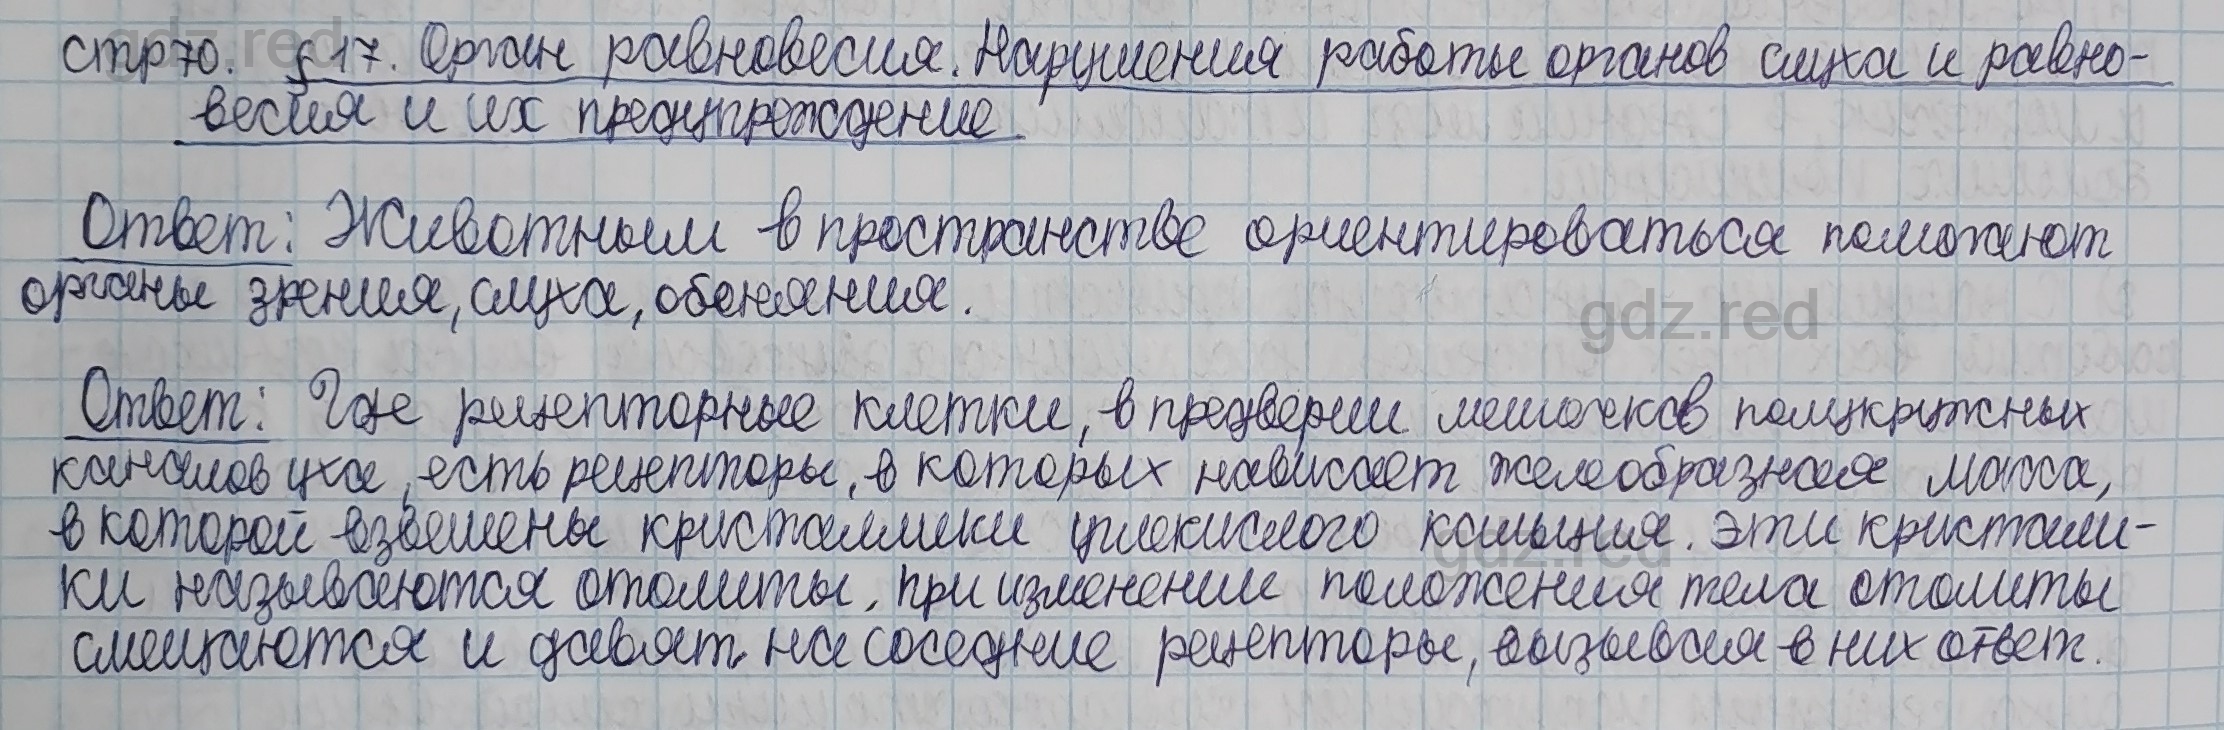 стр 70. § 17. Орган равновесия. Нарушения работы органов слуха и равно-
весия и их предупреждение
Ответ: Животным в пространстве ориентироваться помогают
органы зрения, слуха, обоняния.
gdz.red
Ответ: Где рецепторные клетки, в предверии мешочков полукружных
каналов уха, есть рецепторы, в которых нависает желеобразная масса,
в которой взвешены кристаллики углекислого кальция. Эти кристалли-
ки называются отолиты, при изменении положения тела отолиты
смещаются и давят на соседние рецепторы, вызывая в них ответ.
gdz.red
gdz.red